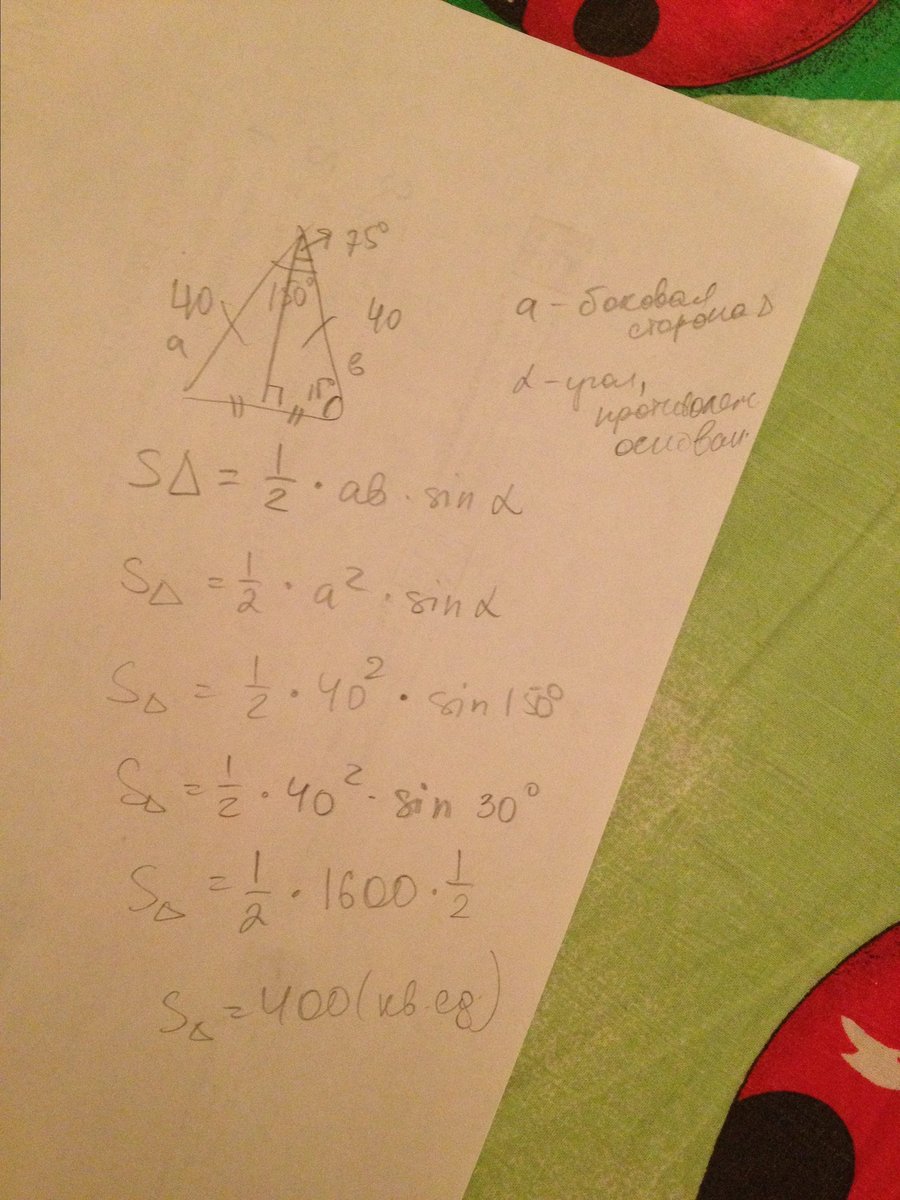 75°
40
150°
40
a
в
15°
a - боковая
сторона Δ
α - угол,
противолеж
основан.
SΔ = 1/2 · aв · sin α
SΔ = 1/2 · a² · sin α
SΔ = 1/2 · 40² · sin 150°
SΔ = 1/2 · 40² · sin 30°
SΔ = 1/2 · 1600 · 1/2
SΔ = 400 (кв.ед)